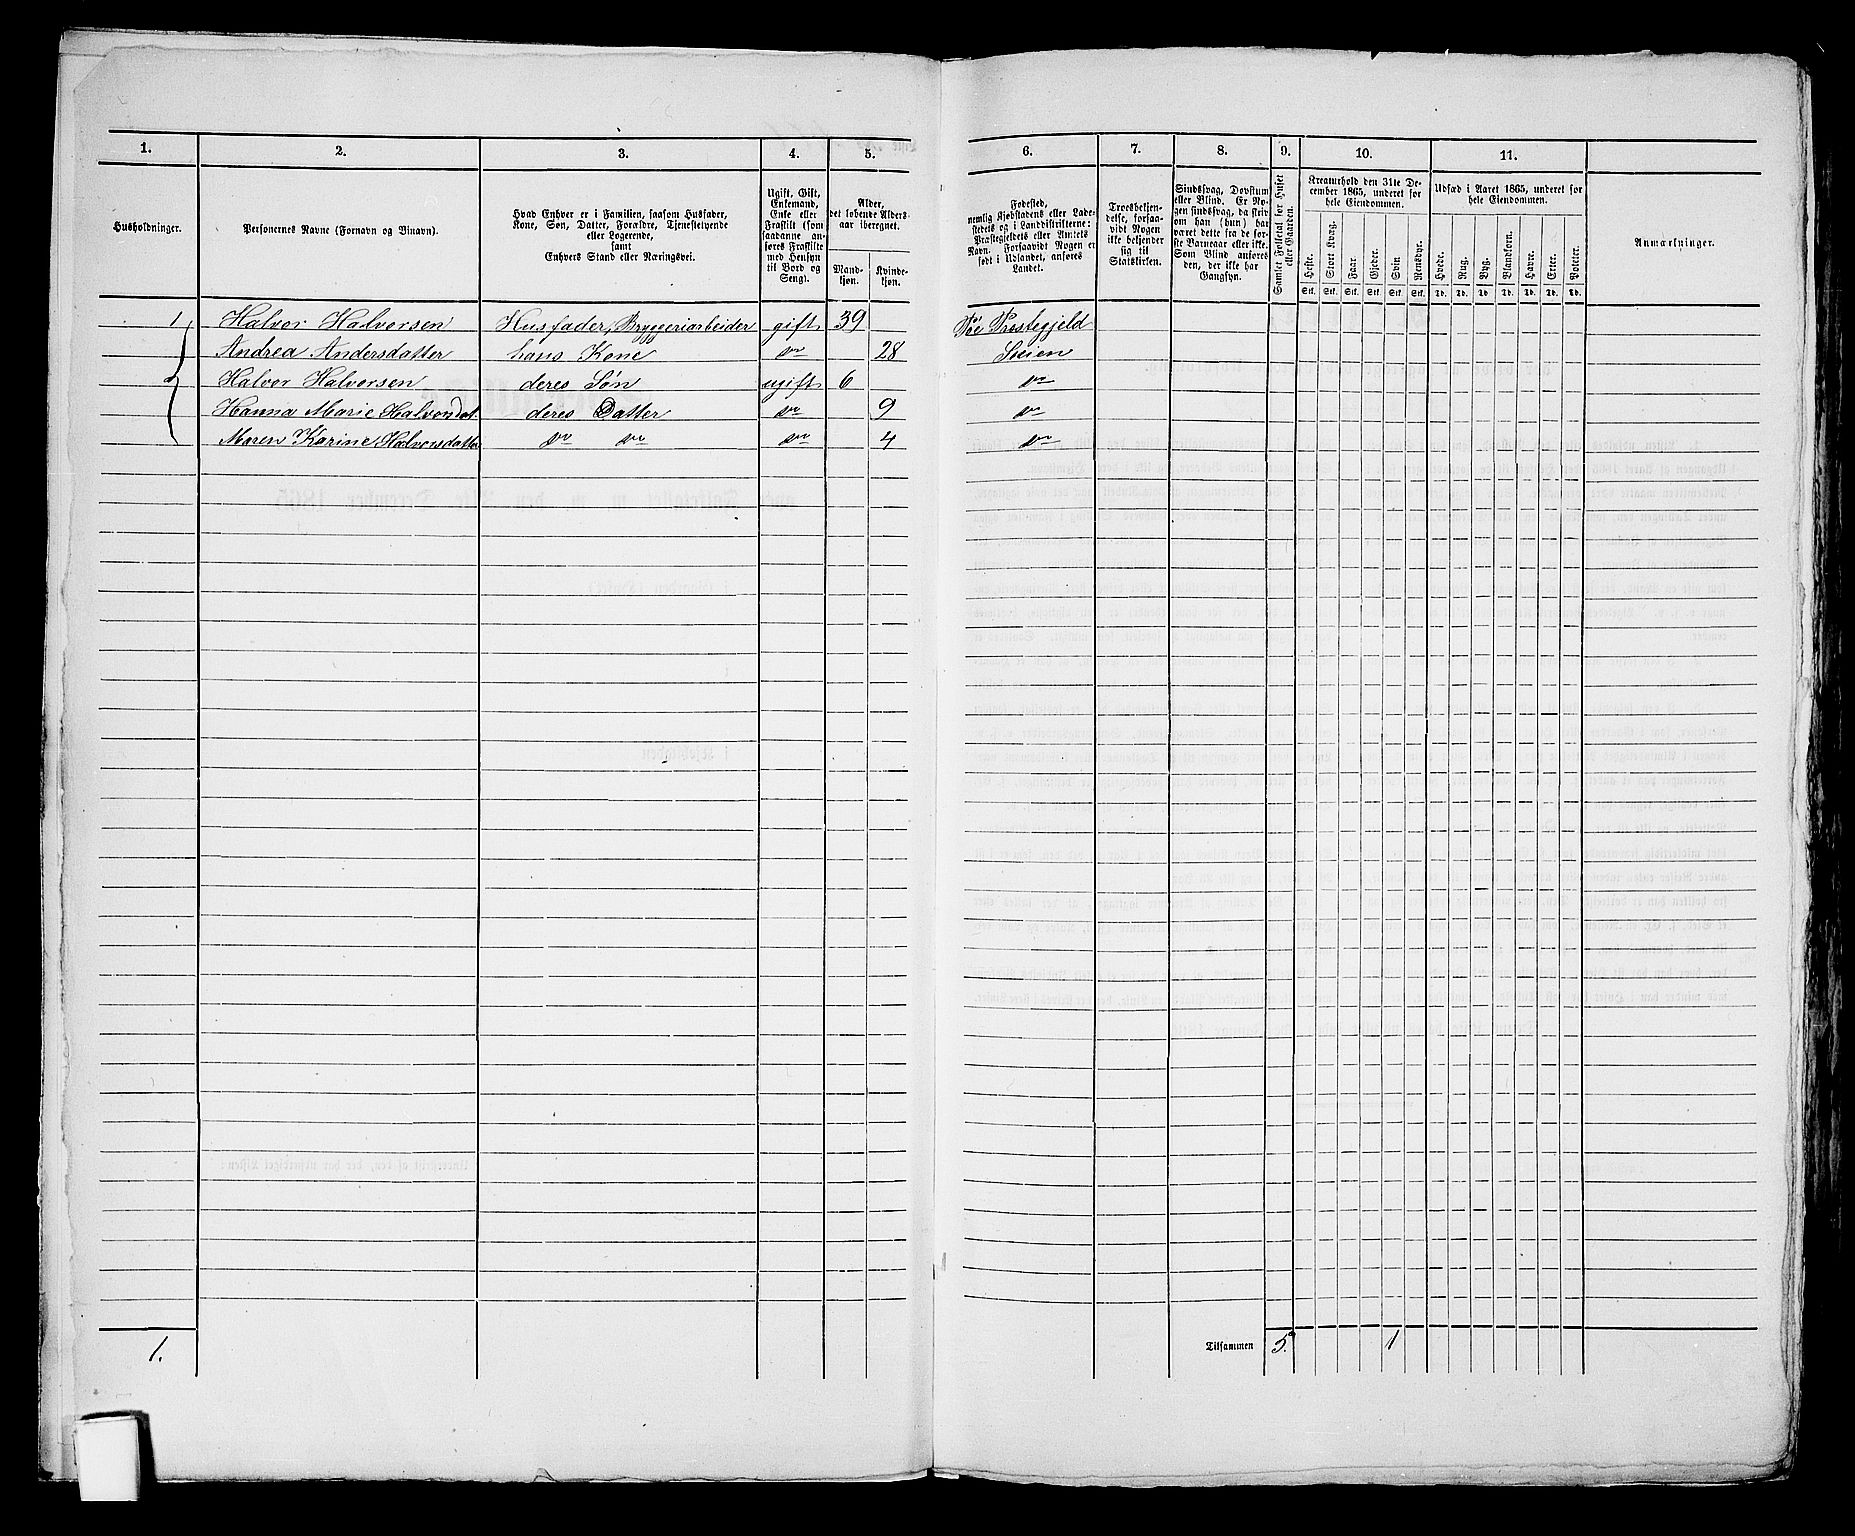 1. 2. 3. 4. 5. 6. 7. 8. 9. 10. 11.
Husholdninger.
Personernes Navne (Fornavn og Binavn).
Hvad Enhver er i Familien, saasom Husfader,
Kone, Søn, Datter, Forældre, Tjenestetyende
eller Logerende,
samt
Enhvers Stand eller Næringsvei.
Ugift, Gift,
Enkemand,
Enke eller
Fraskilt (som
saadanne an-
føres Fraskilte
med Hensyn
til Bord og
Seng).
Alder,
det løbende Alders-
aar iberegnet.
Mand-
kjøn.
Kvinde-
kjøn.
Fødested,
nemlig Kjøbstadens eller Lade-
stedets og i Landdistrikterne:
Præstegjeldets eller Amtets
Navn. Forsaavidt Nogen er
født i Udlandet, anføres
Landet.
Troesbekjen-
delse, forsaa-
vidt Nogen
ikke bekjender
sig til
Statskirken.
Sindssvag, Døvstum
eller Blind. Er No-
gen sindssvag, da skriv
om han (hun) har
været dette fra de før-
ste Barneaar eller ikke.
Som Blind anføres
den, der ikke har
Gangsyn.
Samlet Folketal for Huset
eller Gaarden.
Kreaturhold den 31te De-
cember 1865, underet for
hele Eiendommen.
Heste. Stort Kvæg. Faar. Gjeder. Svin Rensdyr.
Stk. Stk. Stk. Stk. Stk. Stk.
Udsæd i Aaret 1865, underet for
hele Eiendommen.
Hvede. Rug. Byg. Blandkorn. Havre. Erter. Poteter.
Td. Td. Td Td. Td. Td. Td.
Anmærkninger.
1 Halvor Halvorsen Husfader, Bryggeriarbeider gift 39 Bøe Prestegjeld
Andrea Andersdatter hans Kone do 28 Skien
Halvor Halvorsen deres Søn ugift 6 do
Hanna Marie Halvorsdat. deres Datter do 9 do
Maren Karine Halvorsdatter do do do 4 do
1. Tilsammen 5. 1